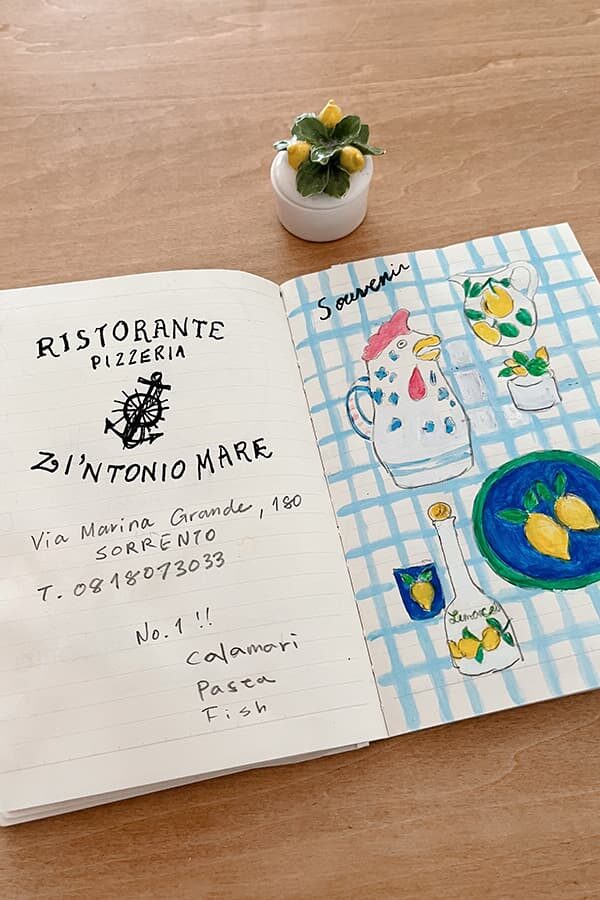 RISTORANTE
PIZZERIA
ZI'NTONIO MARE
Via Marina Grande, 180
SORRENTO
T. 0818073033
No. 1 !!
Calamari
Pasta
Fish
Souvenir